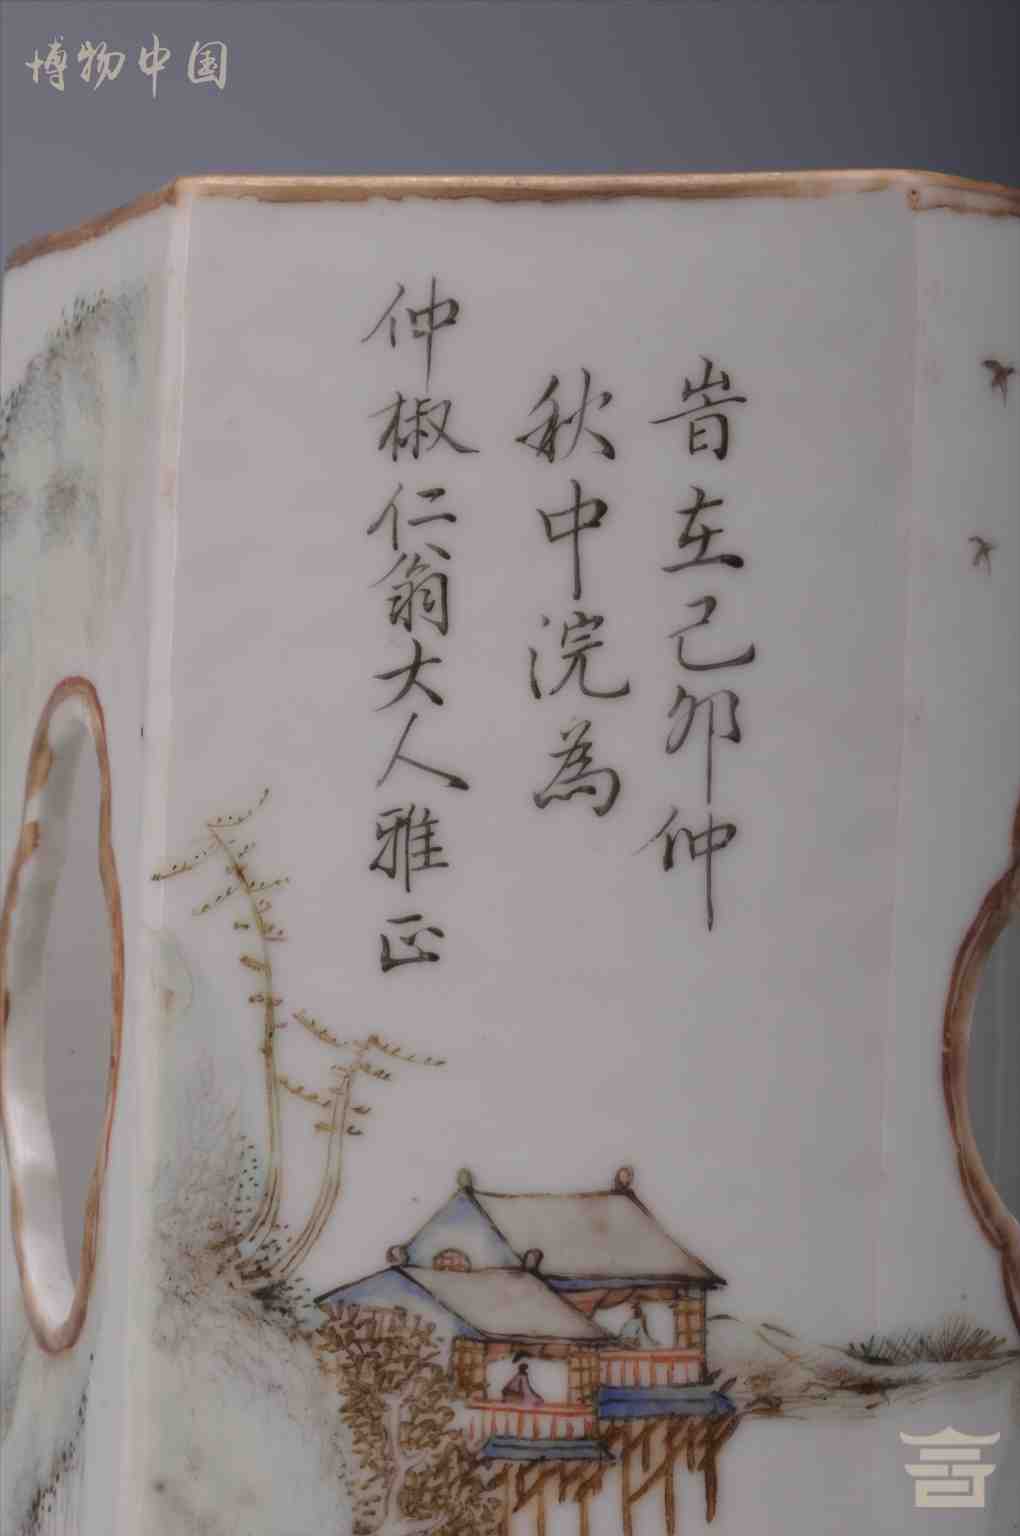 博物中国
旹在己卯仲
秋中浣為
仲椒仁翁大人雅正